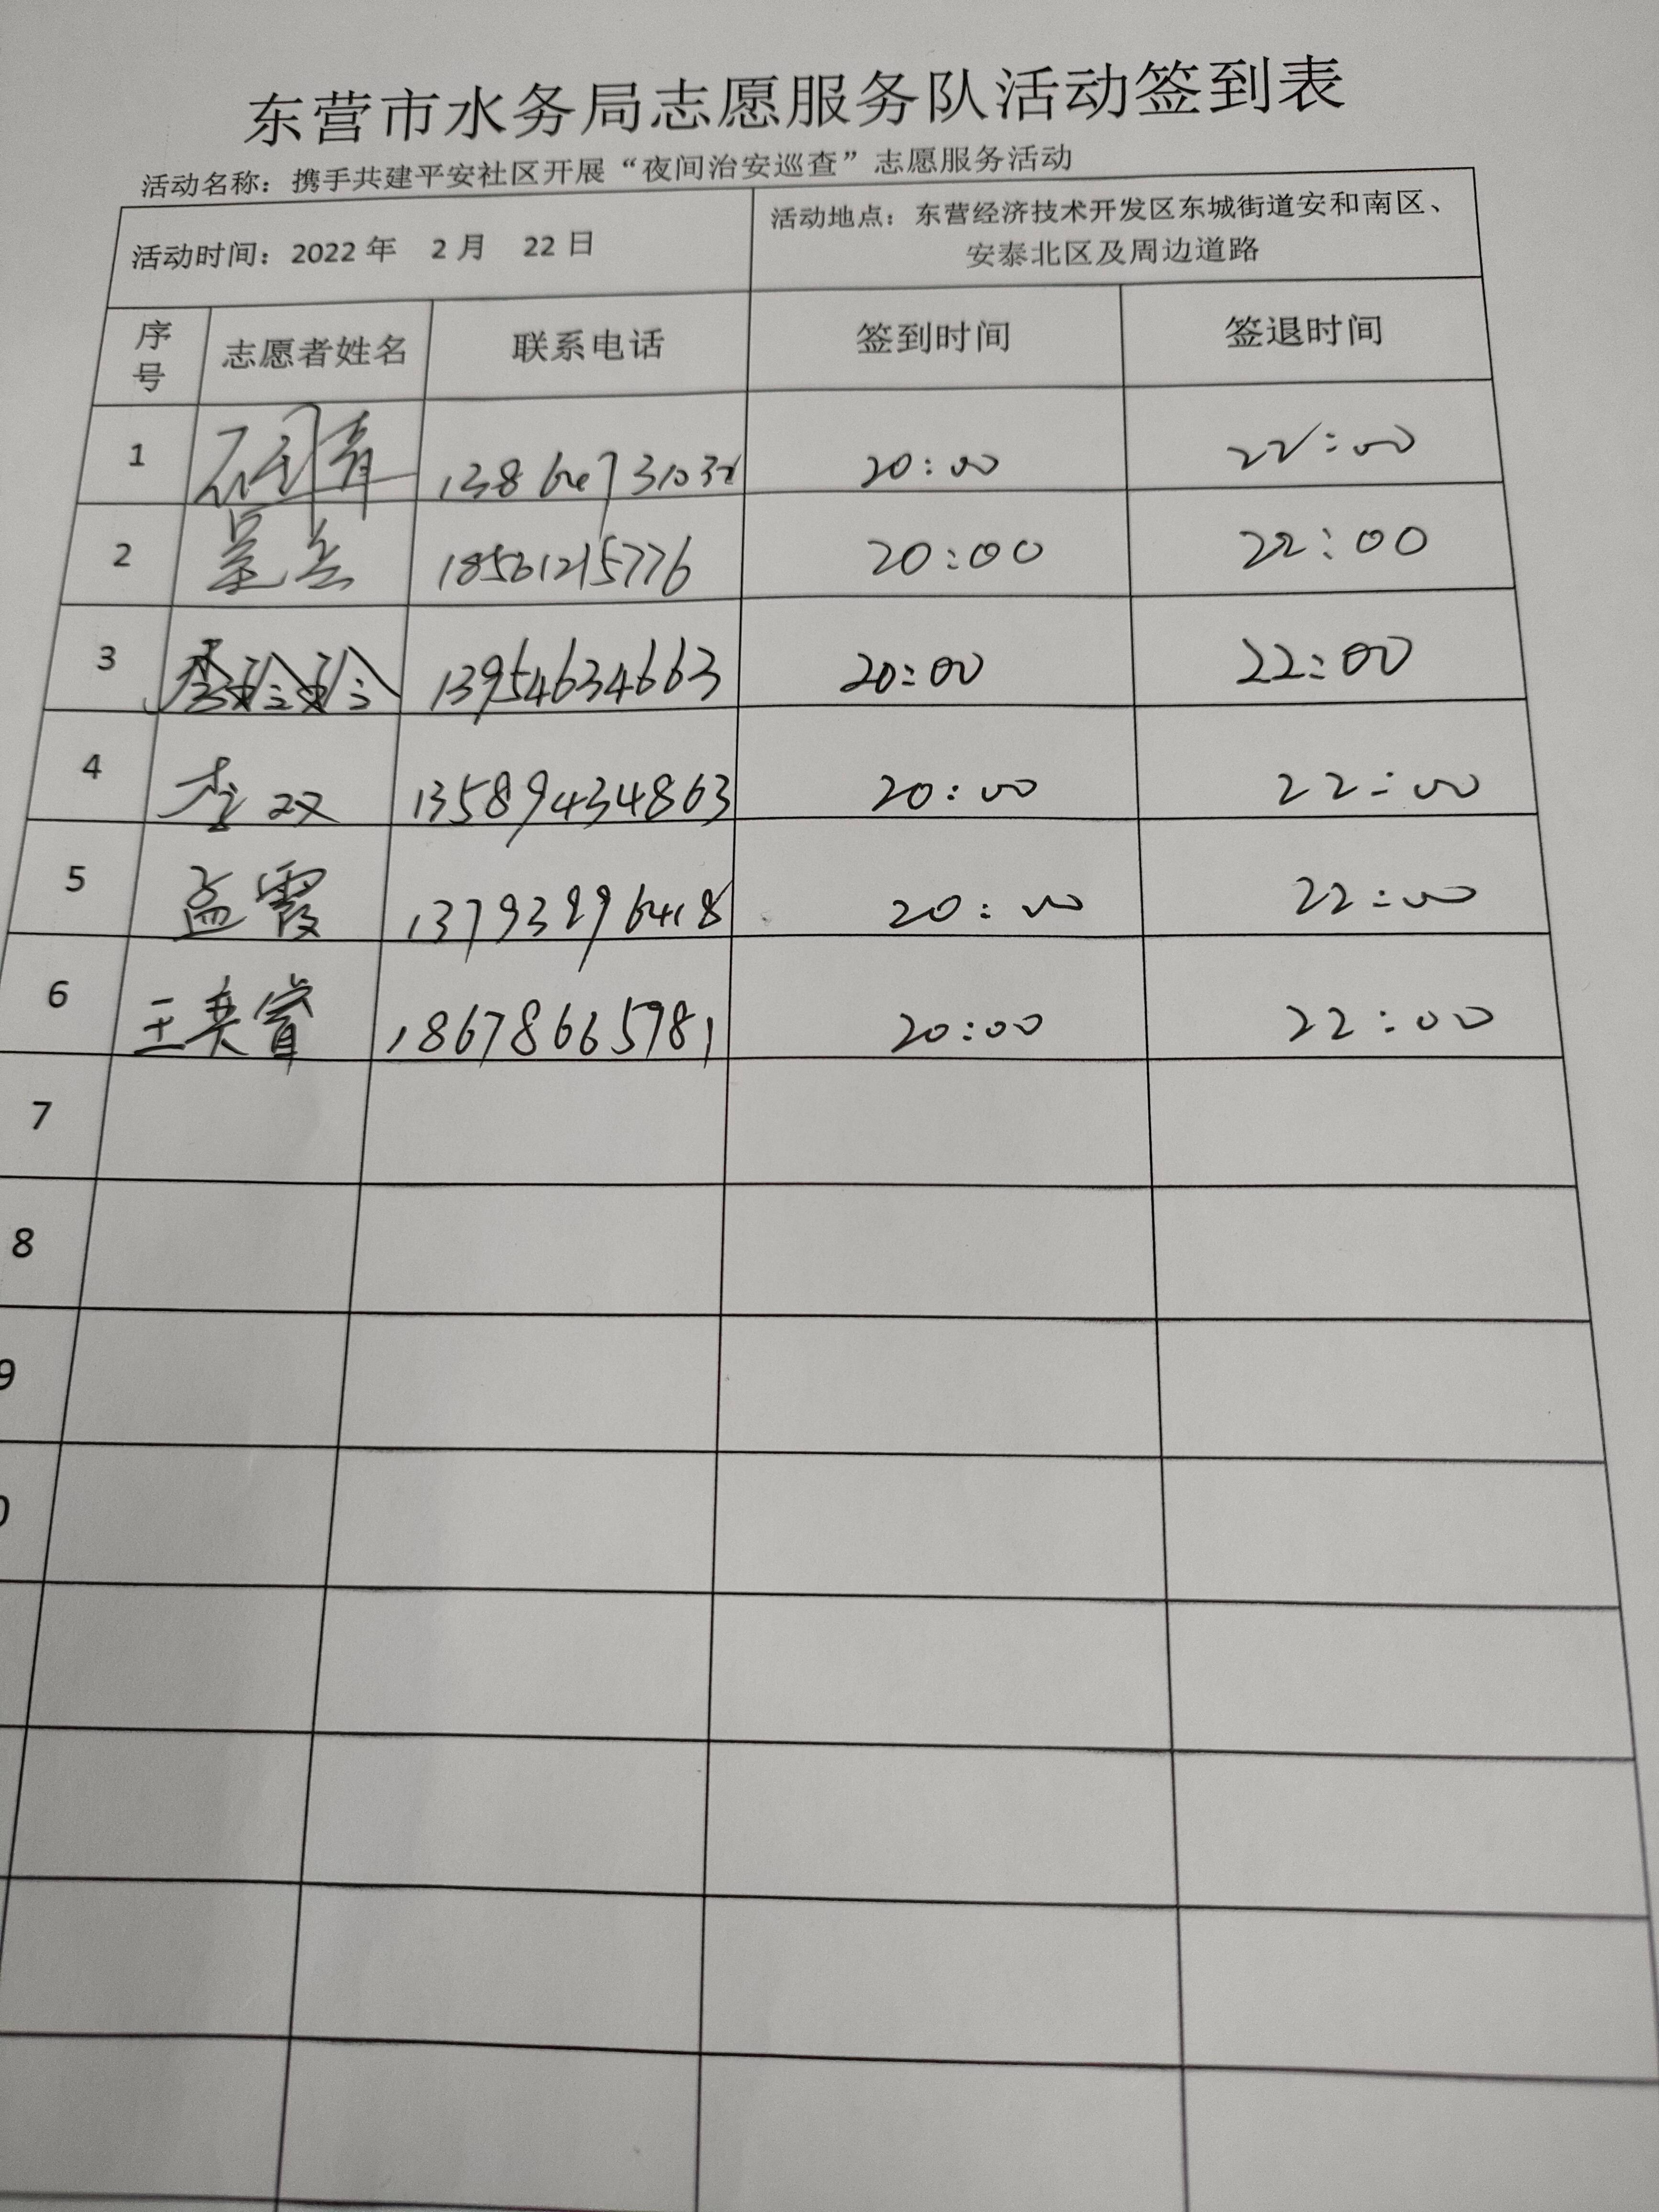 东营市水务局志愿服务队活动签到表
活动名称：携手共建平安社区开展“夜间治安巡查”志愿服务活动
活动时间：2022 年 2 月 22 日
活动地点：东营经济技术开发区东城街道安和南区、
安泰北区及周边道路
序号 志愿者姓名 联系电话 签到时间 签退时间
1 20:00 22:00
2 18561215776 20:00 22:00
3 李玲玲 13954634663 20:00 22:00
4 李双 13589434863 20:00 22:00
5 孟霞 13793296418 20:00 22:00
6 王奕睿 18678665781 20:00 22:00
7
8
9
0